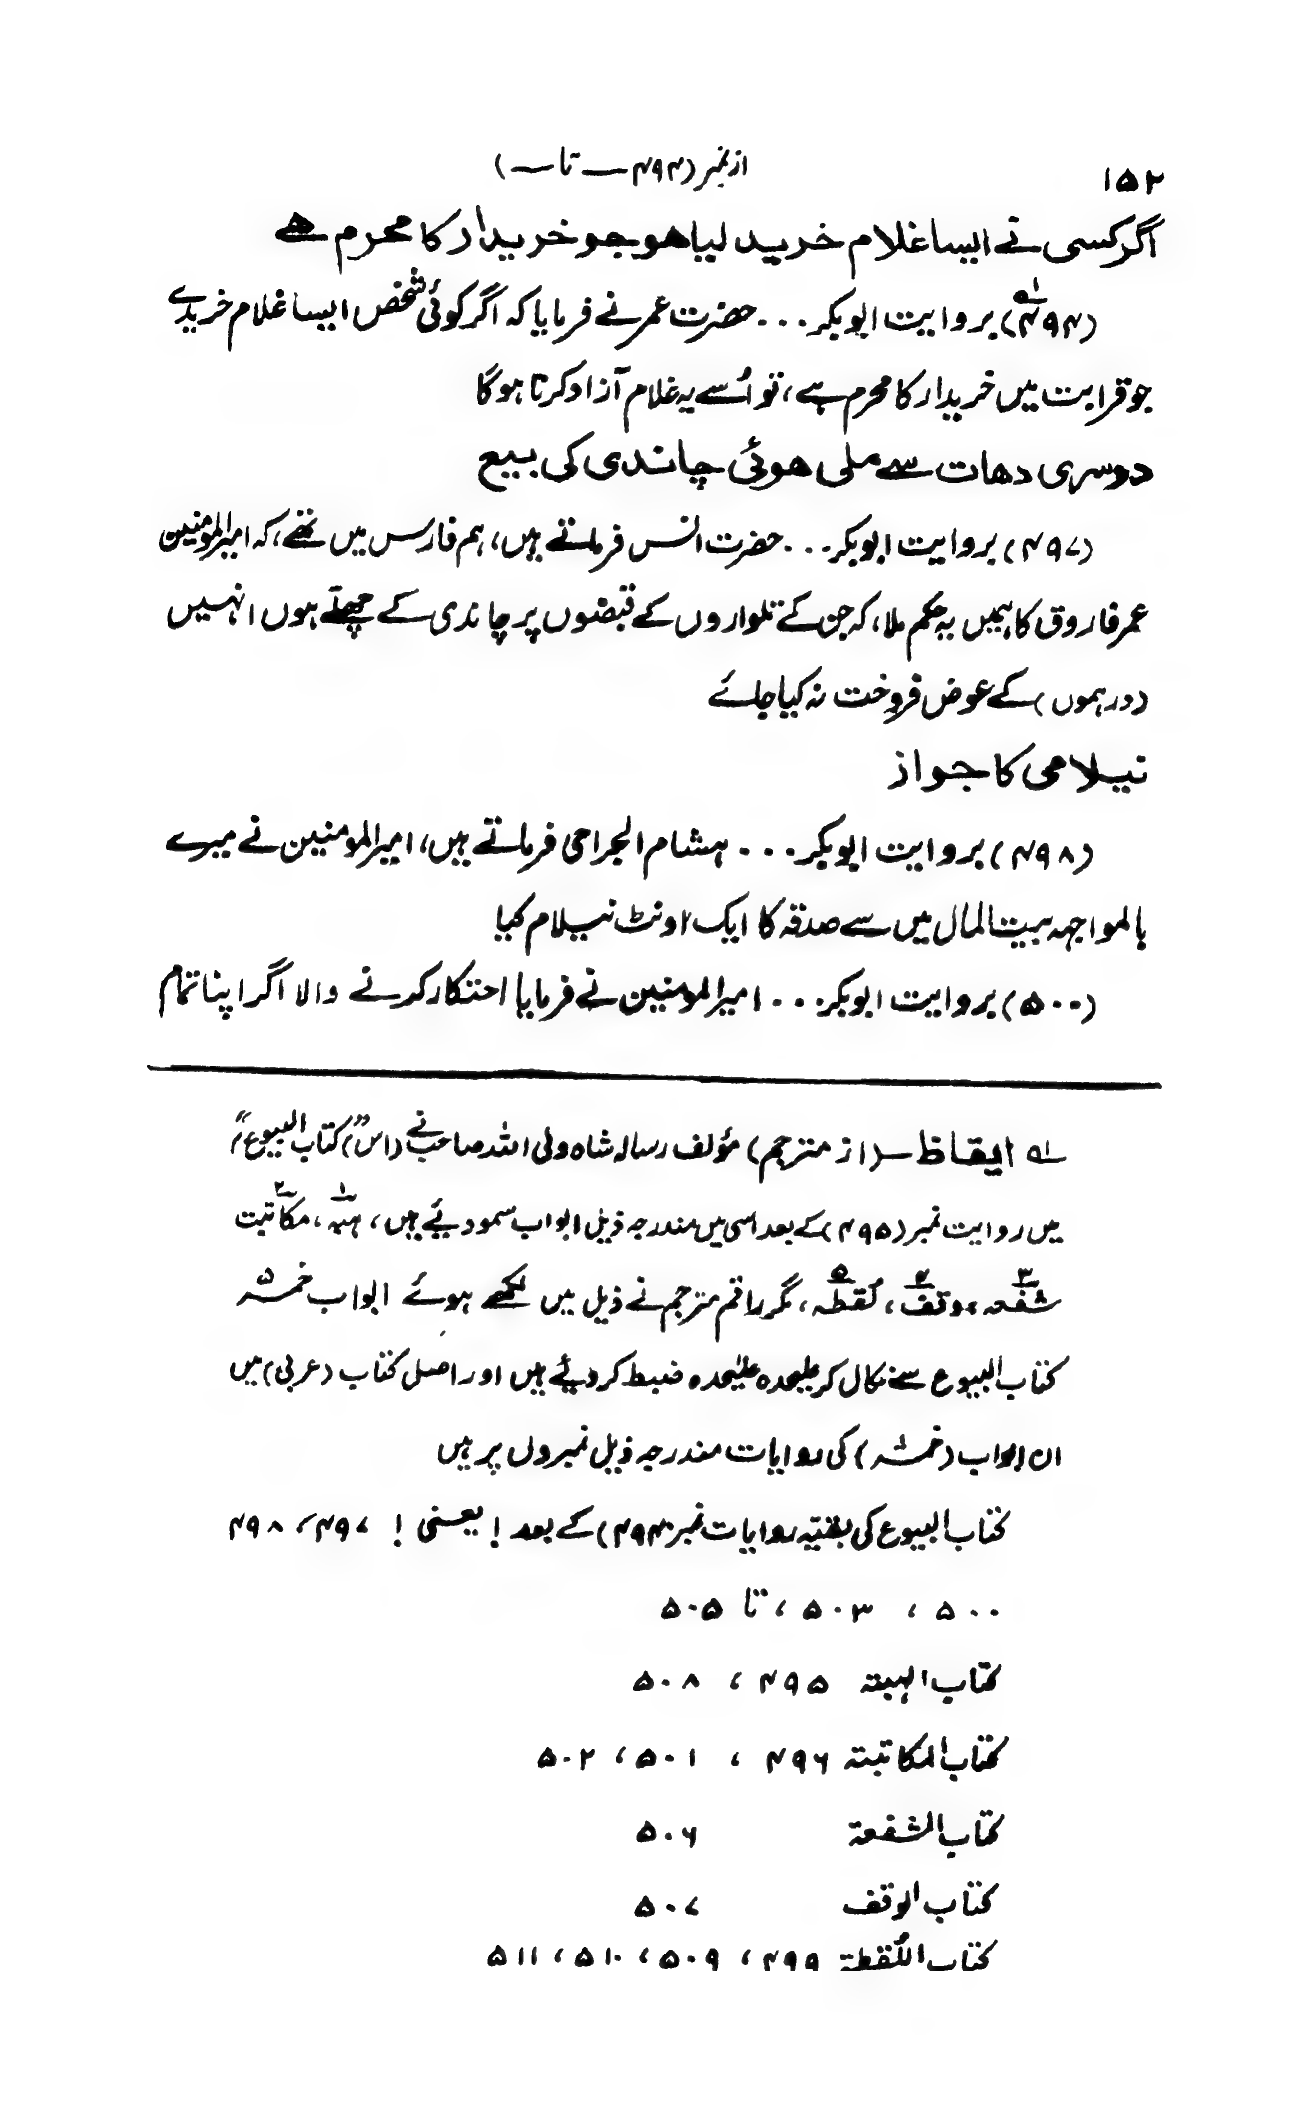 ۱۵۲
از نمبر (۴۹۴ — تا —)
اگر کسی نے ایسا غلام خرید لیا ہو جو خریدار کا محرم ہے
(۴۹۴)لہ بروایت ابوبکر... حضرت عمر نے فرمایا کہ اگر کوئی شخص ایسا غلام خریدے
جو قرابت میں خریدار کا محرم ہے، تو اُسے یہ غلام آزاد کرنا ہوگا
دوسری دھات سے ملی ہوئی چاندی کی بیع
(۴۹۷) بروایت ابوبکر... حضرت انس فرماتے ہیں، ہم فارس میں تھے، کہ امیرالمومنین
عمر فاروق کا ہمیں یہ حکم ملا، کہ جن کے تلواروں کے قبضوں پر چاندی کے چھلّے ہوں انہیں
(درہموں) کے عوض فروخت نہ کیا جائے
نیلامی کا جواز
(۴۹۸) بروایت ابوبکر... ہشام الجراحی فرماتے ہیں، امیرالمومنین نے میرے
بالمواجہہ بیت المال میں سے صدقہ کا ایک اونٹ نیلام کیا
(۵۰۰) بروایت ابوبکر... امیرالمومنین نے فرمایا احتکار کرنے والا اگر اپنا تمام
لہ ایقاظ — (از مترجم) مؤلف رسالہ شاہ ولی اللہ صاحب نے (اس) "کتاب البیوع"
میں روایت نمبر (۴۹۵) کے بعد اسی میں مندرجہ ذیل ابواب سمو دیئے ہیں، ہبہ۱، مکاتبت۲
شفعہ۳، وقف۴، لُقطہ۵، مگر راقم مترجم نے ذیل میں لکھے ہوئے ابواب خمسہ
کتاب البیوع سے نکال کر علیحدہ علیحدہ ضبط کر دیئے ہیں اور اصل کتاب (عربی) میں
ان ابواب (خمسہ) کی روایات مندرجہ ذیل نمبروں پر ہیں
کتاب البیوع کی بقیّہ روایات نمبر ۴۹۴) کے بعد! یعنی! ۴۹۷، ۴۹۸
۵۰۰، ۵۰۳، تا ۵۰۵
کتاب الہبتہ ۴۹۵، ۵۰۸
کتاب المکاتبتہ ۴۹۶، ۵۰۱، ۵۰۲
کتاب الشفعۃ ۵۰۶
کتاب الوقف ۵۰۷
کتاب اللُقطۃ ۴۹۹، ۵۰۹، ۵۱۰، ۵۱۱